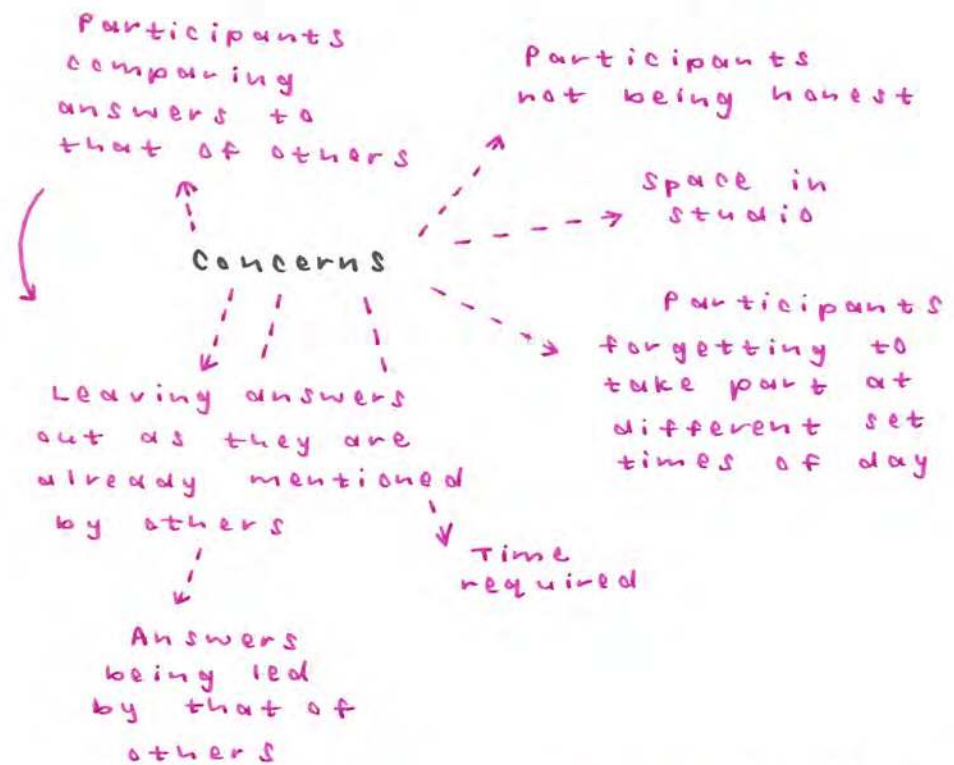 Participants
comparing
answers to
that of others
Participants
not being honest
space in
studio
concerns
Participants
forgetting to
take part at
different set
times of day
Leaving answers
out as they are
already mentioned
by others
Time
required
Answers
being led
by that of
others